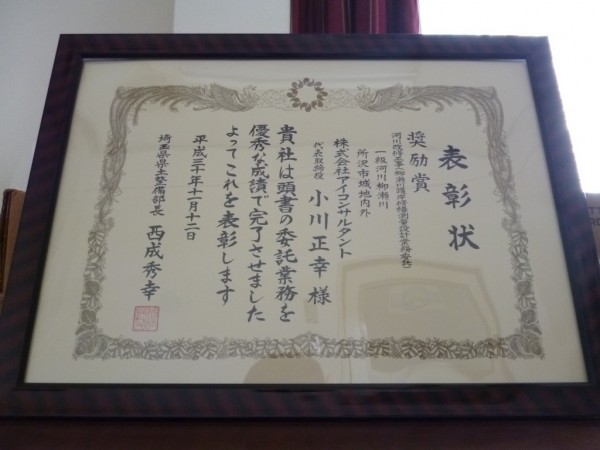 表彰状
奨励賞
河川改修工事(柳瀬川護岸修繕測量設計業務委託)
一級河川柳瀬川
所沢市城地内外
株式会社アイコンサルタント
代表取締役 小川正幸 様
貴社は頭書の委託業務を
優秀な成績で完了させました
よってこれを表彰します
平成三十年十一月十二日
埼玉県県土整備部長 西成秀幸